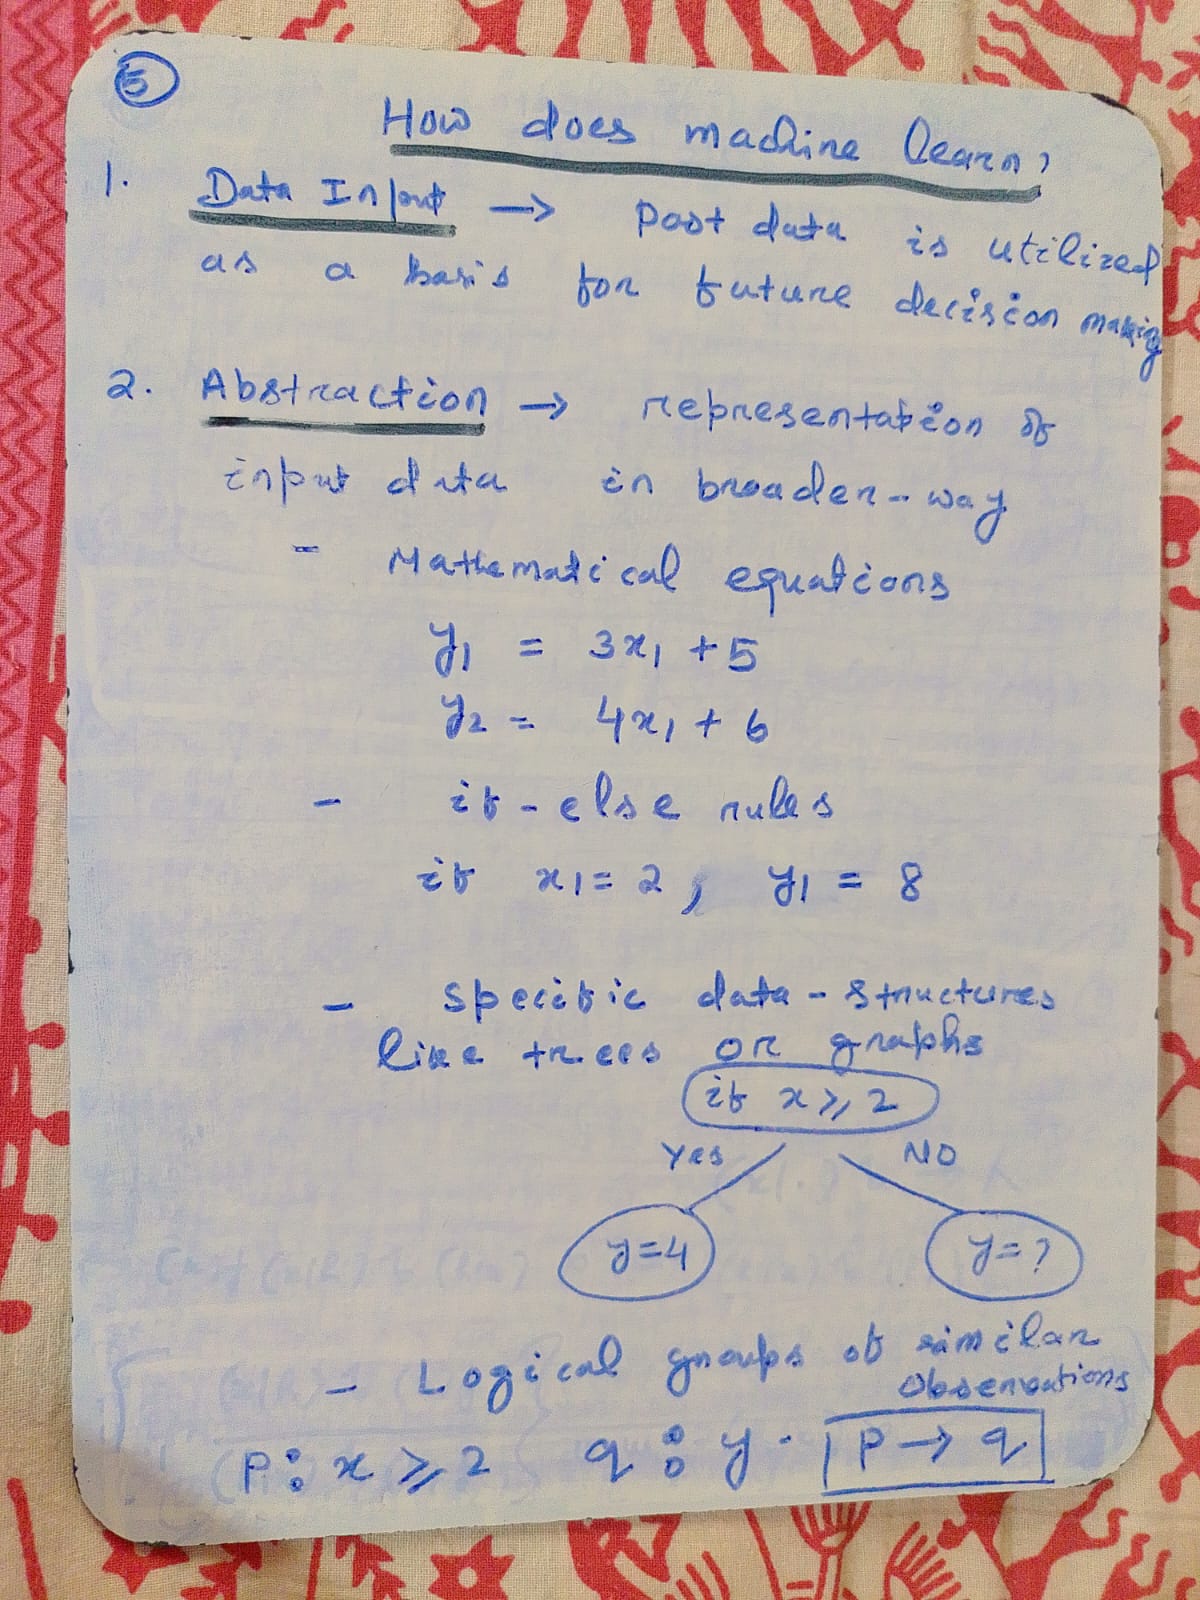 5
How does machine learn?
1. Data Input → Past data is utilized
as a basis for future decision making
2. Abstraction → representation of
input data in broader-way
- Mathematical equations
y₁ = 3x₁ + 5
y₂ = 4x₁ + 6
- if-else rules
if x₁ = 2, y₁ = 8
- specific data-structures
like trees or graphs
if x ⩾ 2
Yes NO
y=4 y=?
- Logical groups of similar
observations
P: x ⩾ 2 q: y. P → q